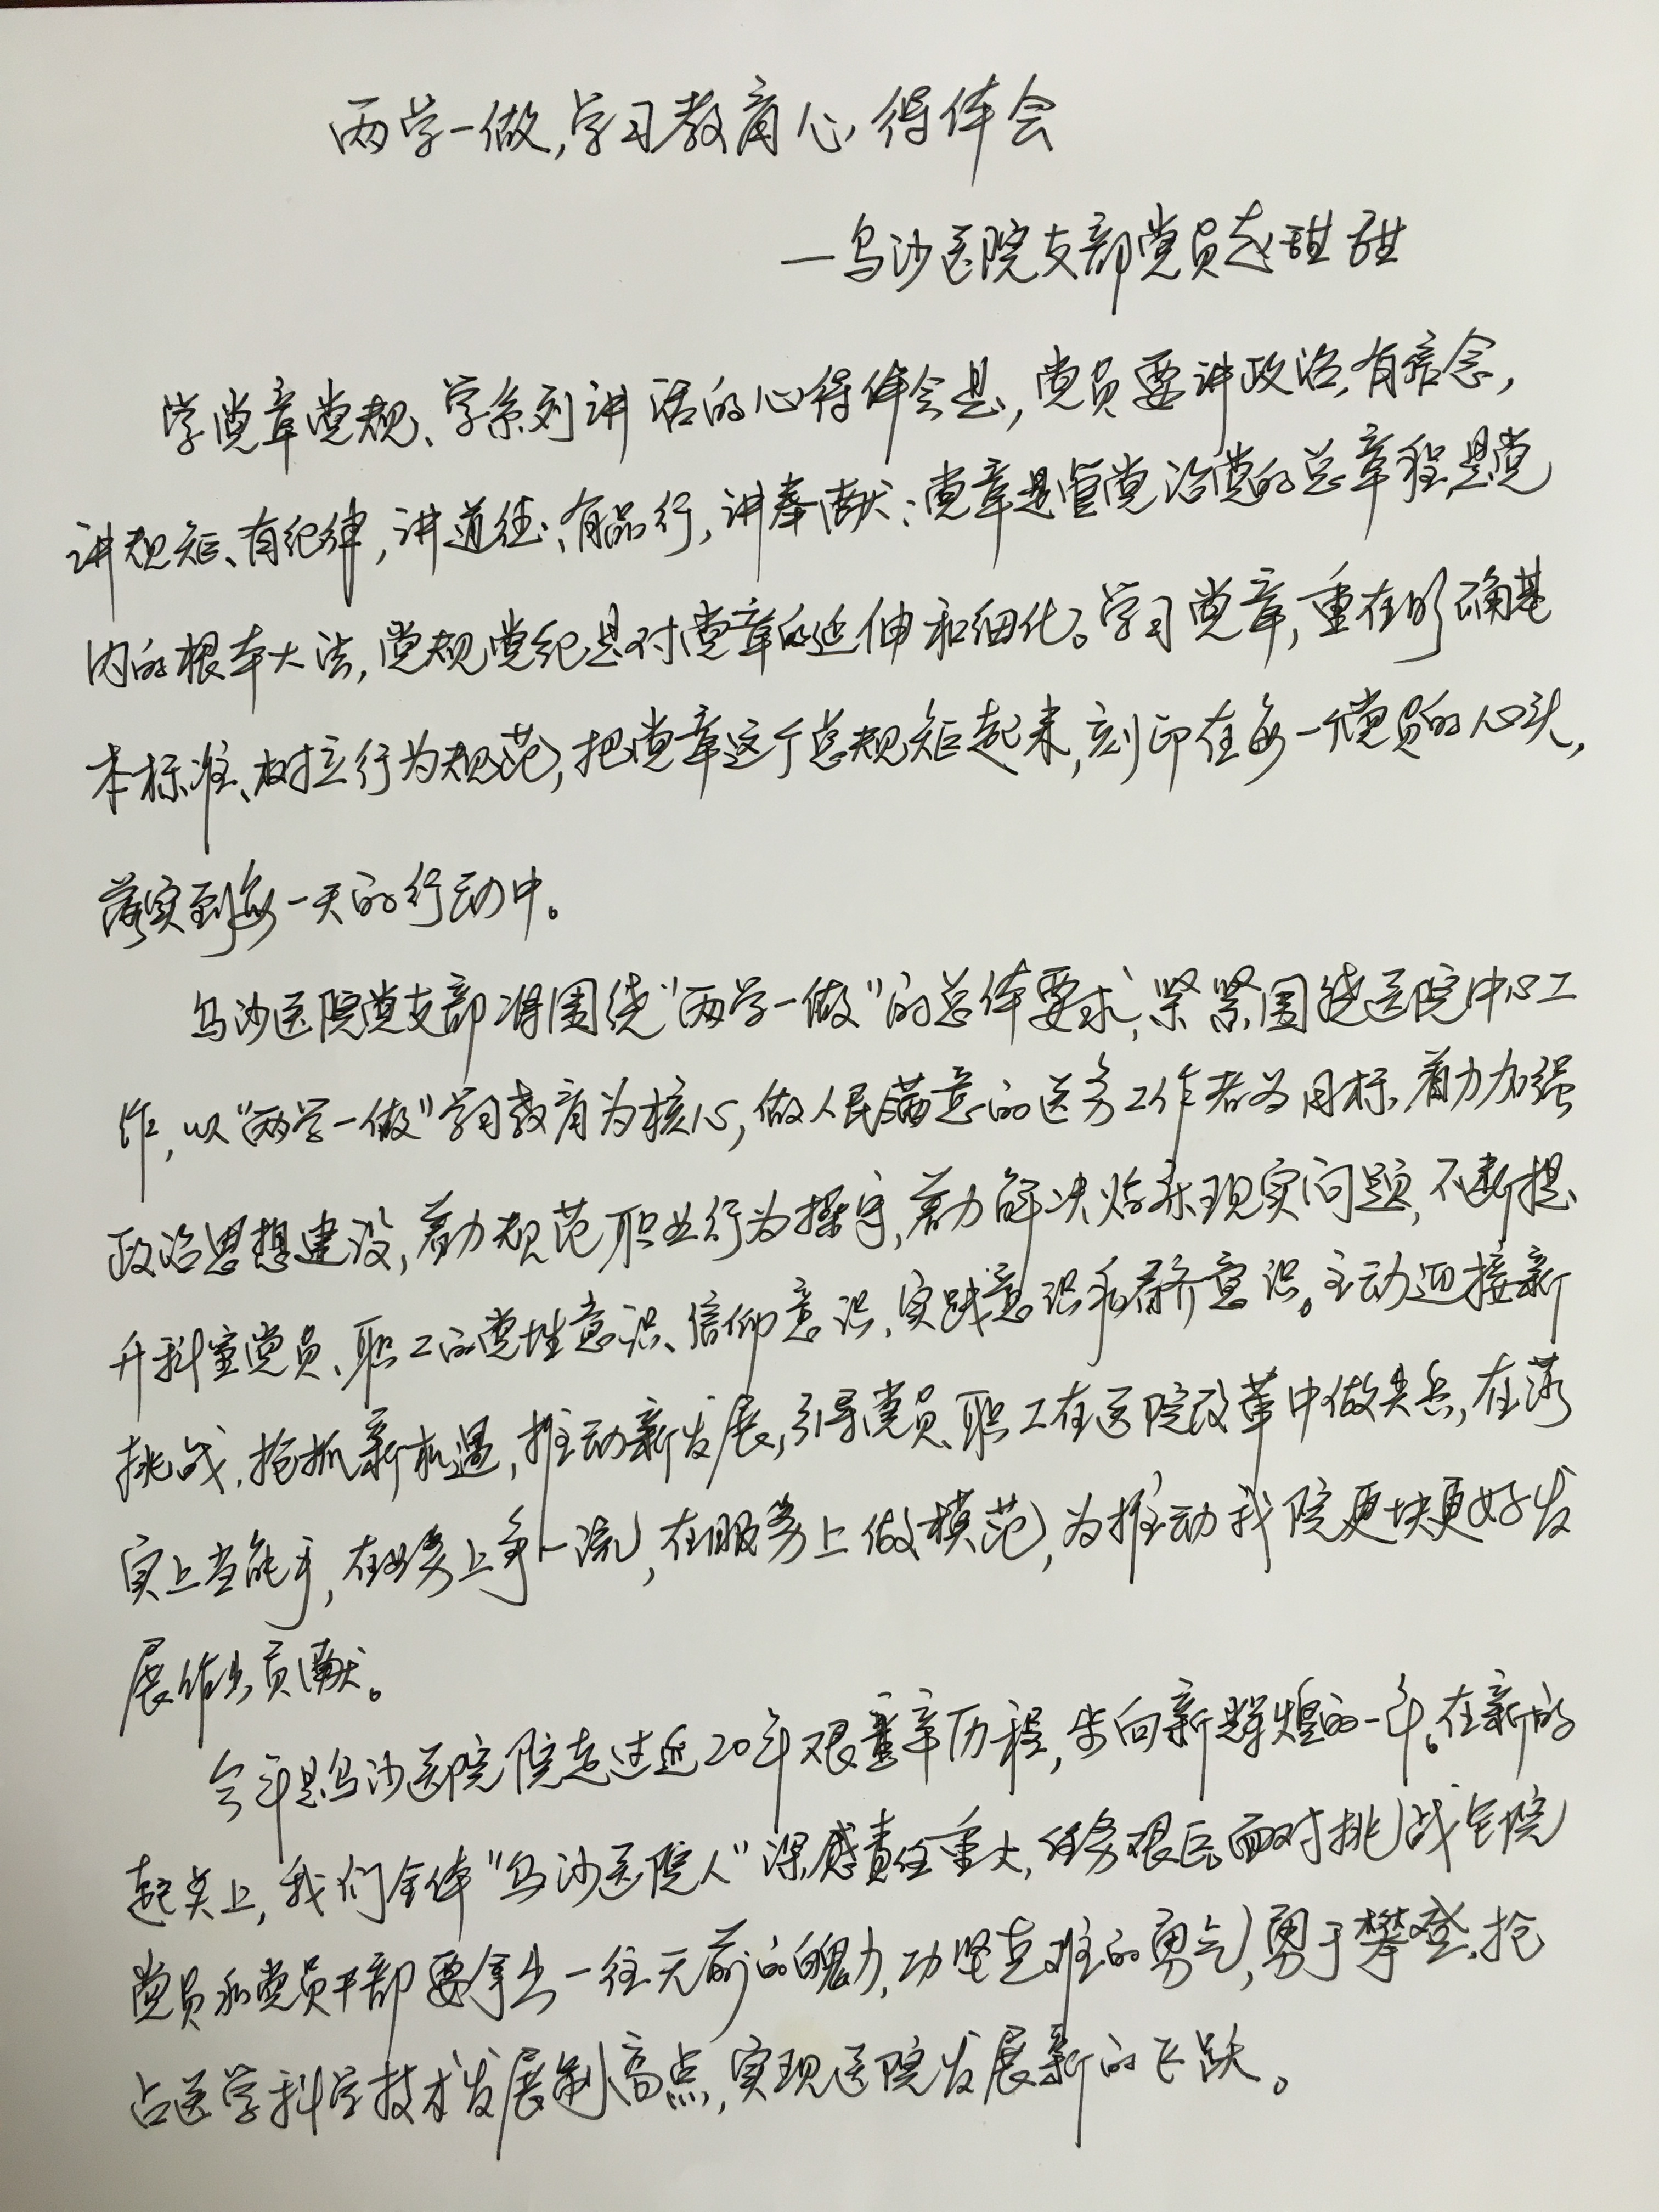 两学一做,学习教育心得体会
—乌沙医院支部党员赵甜甜
学党章党规、学系列讲话的心得体会是,党员要讲政治,有信念,
讲规矩、有纪律,讲道德;有品行,讲奉献;党章是管党治党的总章程,是党
内的根本大法,党规党纪是对党章的延伸和细化。学习党章,重在明确基
本标准、树立行为规范,把党章这个总规矩起来,刻印在每一个党员的心头,
落实到每一天的行动中。
乌沙医院党支部将围绕“两学一做”的总体要求,紧紧围绕医院中心工
作,以“两学一做”学习教育为核心,做人民满意的医务工作者为目标,着力加强
政治思想建设,着力规范职业行为操守,着力解决好系现实问题,不断提
升科室党员、职工的党性意识、信仰意识,实践意识和看齐意识。主动迎接新
挑战,抢抓新机遇,推动新发展,引导党员、职工在医院改革中做尖兵,在落
实上当能手,在业务上争一流,在服务上做模范,为推动我院更块更好发
展作出贡献。
今年是乌沙医院院走过近20年艰辛历程,步向新辉煌的一年。在新的
起点上,我们全体“乌沙医院人”深感责任重大,任务艰巨面对挑战全院
党员和党员干部要拿出一往无前的魄力,功坚克难的勇气,勇于攀登,抢
占医学科学技术发展制高点,实现医院发展新的飞跃。